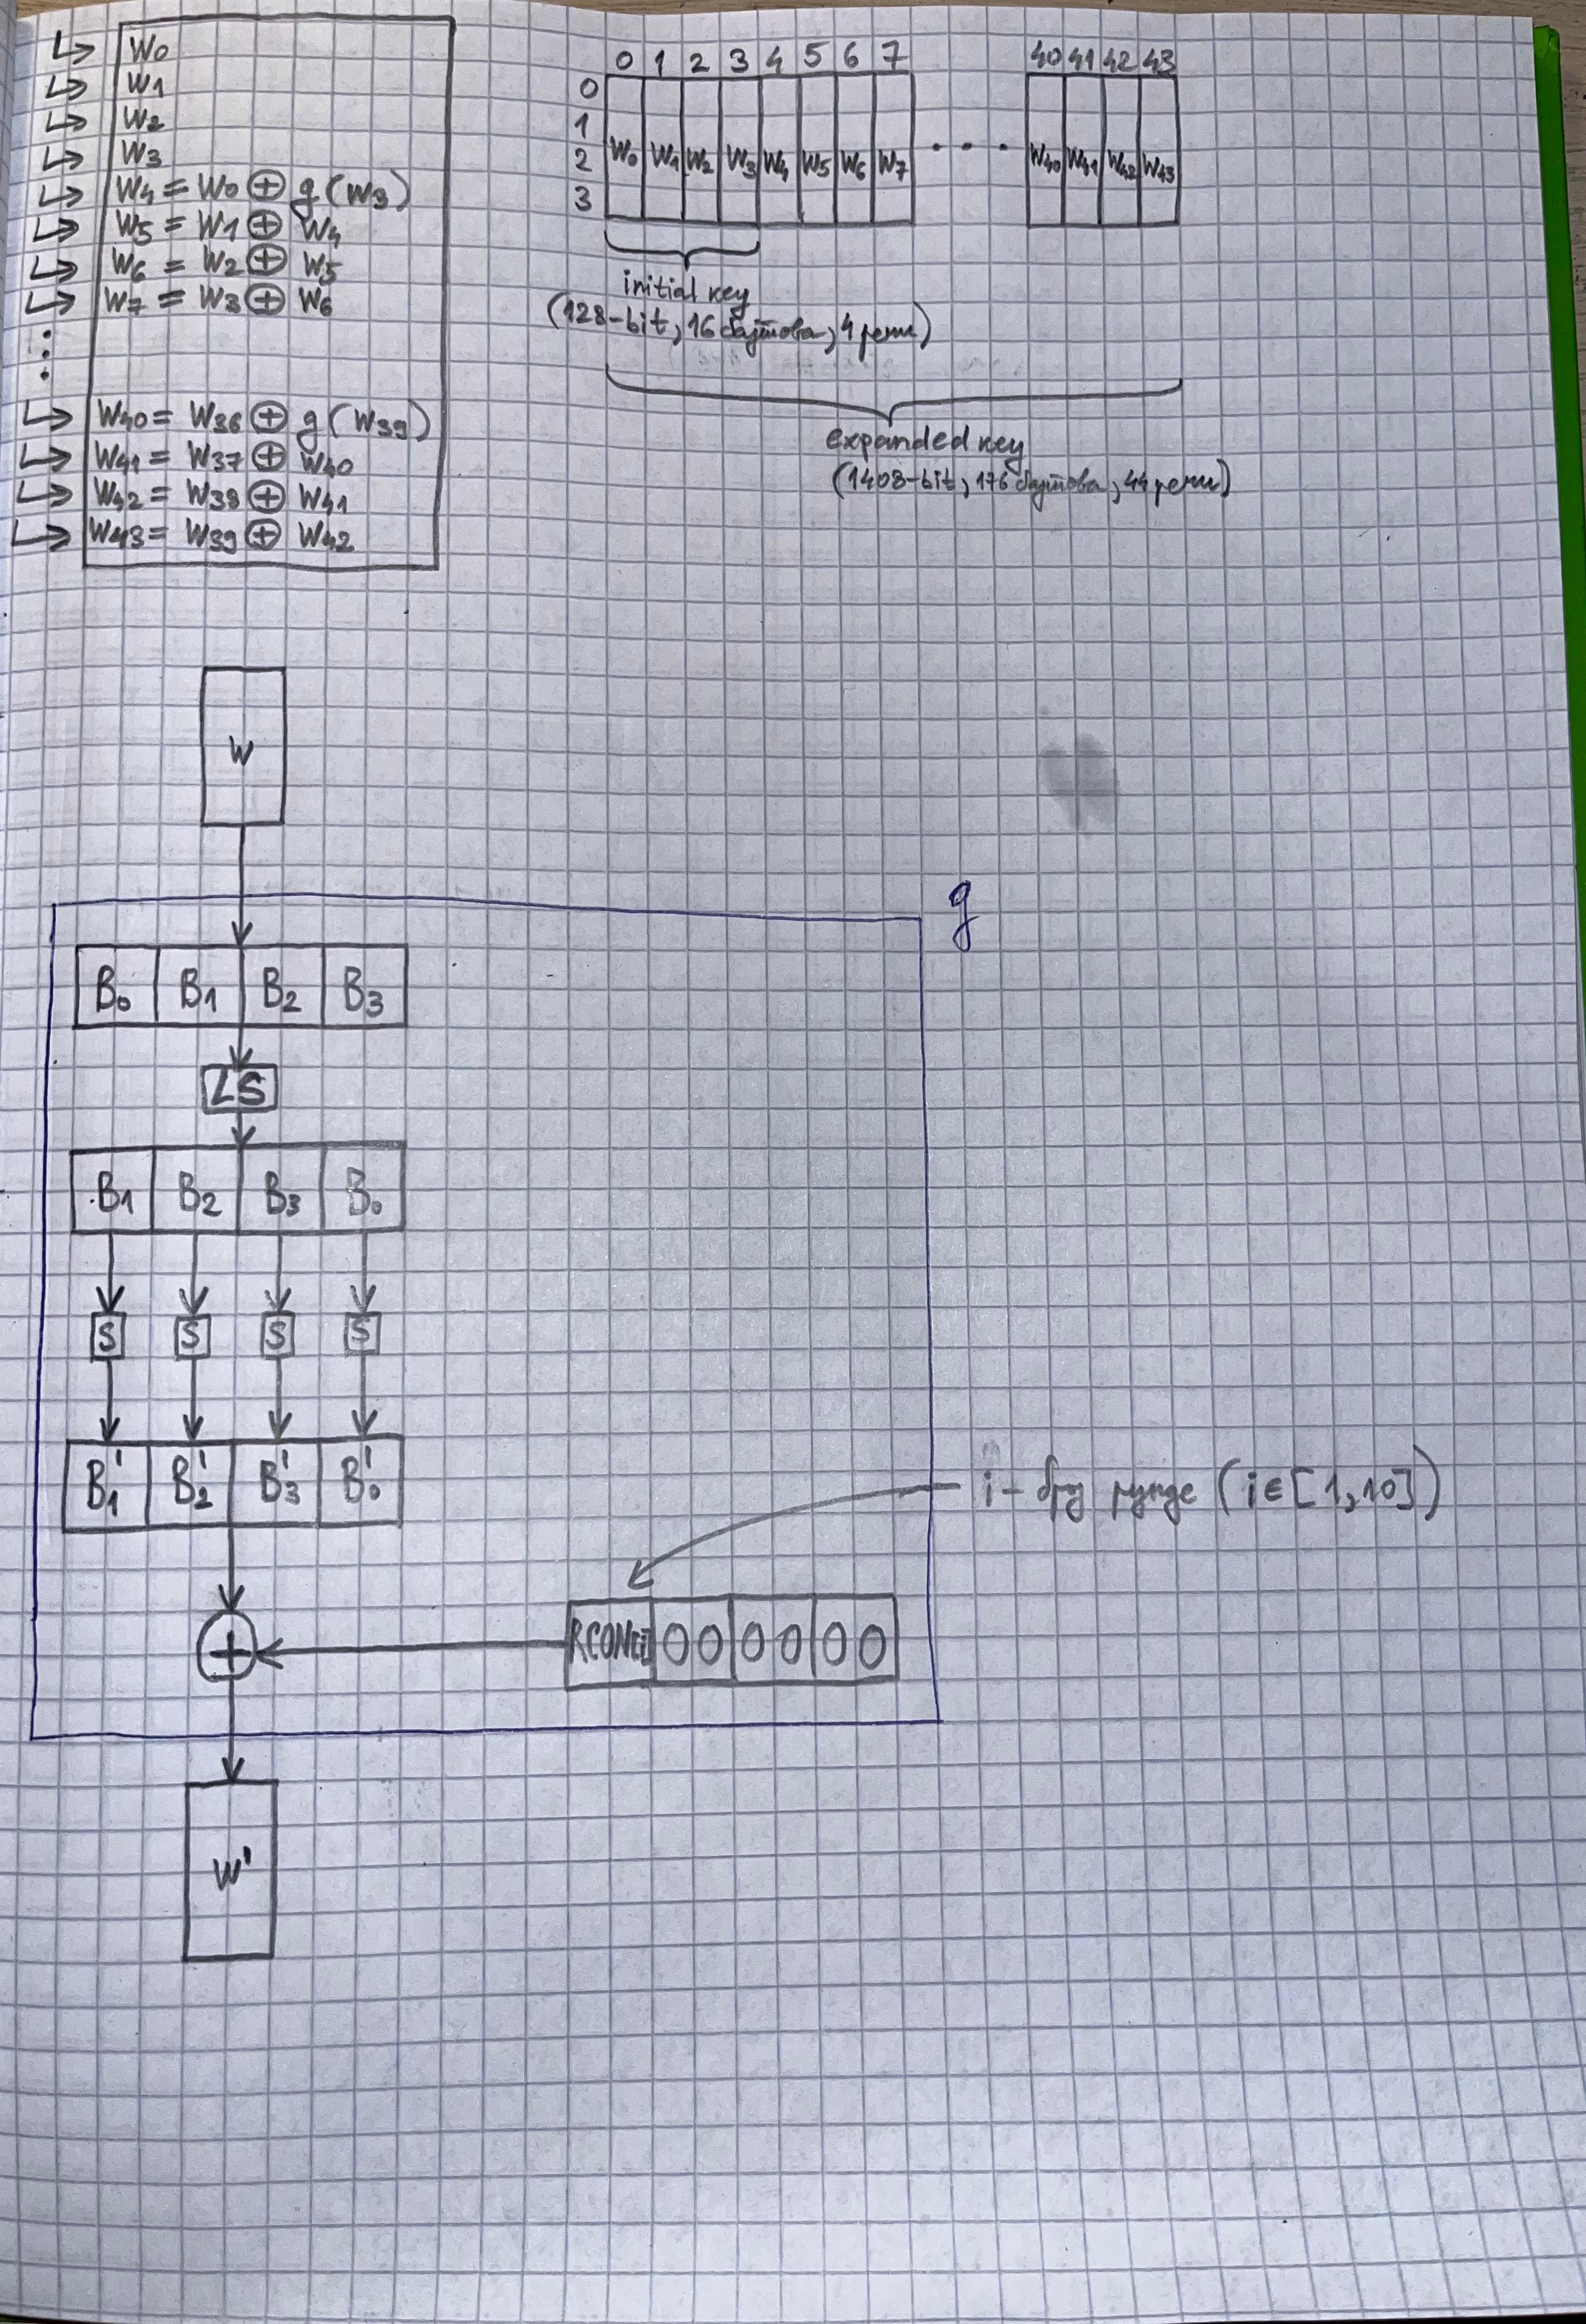 W0
W1
W2
W3
W4 = W0 ⊕ g(W3)
W5 = W1 ⊕ W4
W6 = W2 ⊕ W5
W7 = W3 ⊕ W6
⋮
W40 = W36 ⊕ g(W39)
W41 = W37 ⊕ W40
W42 = W38 ⊕ W41
W43 = W39 ⊕ W42
0 1 2 3 4 5 6 7 40 41 42 43
0
1
2
3
W0 W1 W2 W3 W4 W5 W6 W7 . . . W40 W41 W42 W43
initial key
(128-bit, 16 бајтова, 4 речи)
expanded key
(1408-bit, 176 бајтова, 44 речи)
W
g
B0 B1 B2 B3
LS
B1 B2 B3 B0
S S S S
B1' B2' B3' B0'
i - број рунде (i ∈ [1,10])
+
RCON[i] 00 00 00
W'